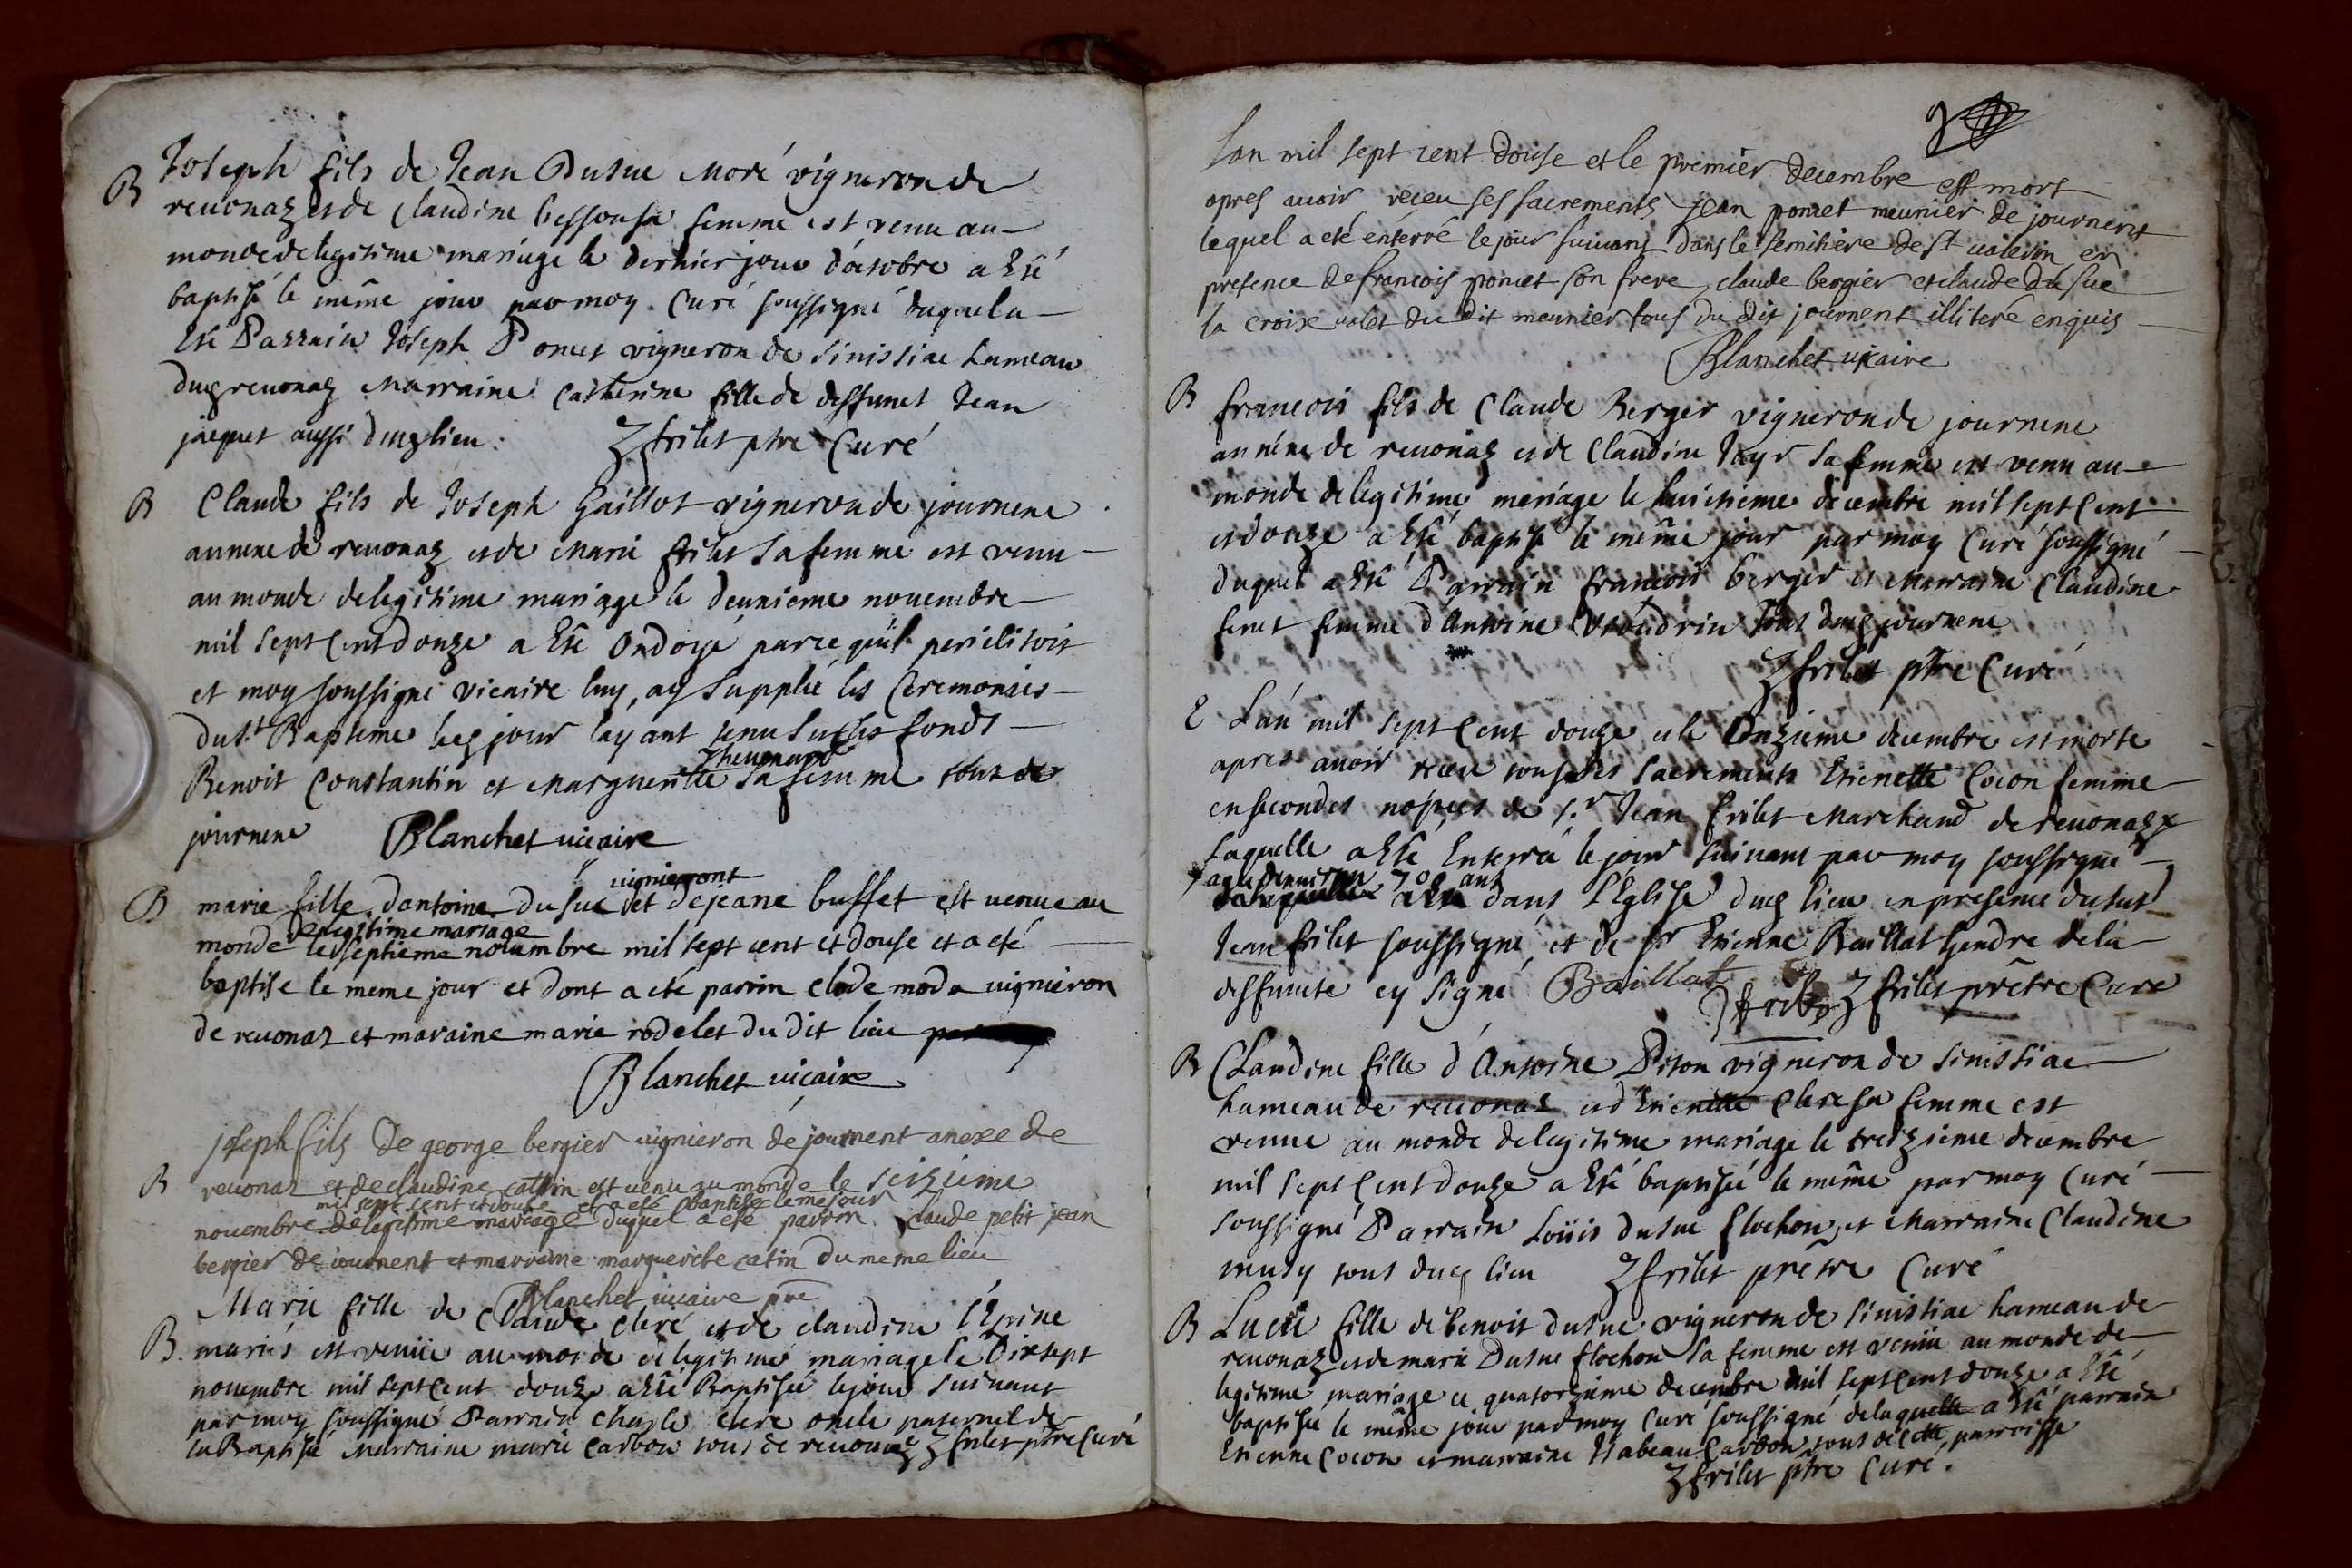 B Joseph fils de Jean Dusue Moré vigneron de
reuonaz et de Claudine besson sa femme est venu au
monde de legitime mariage le dernier jour d'octobre a Esté
baptisé le même jour par moy Curé soussigné duquel a
Esté Parrain Joseph Poncet vigneron de Sinissiac hameau
duq reuonaz Marraine Catherine fille de deffunct Jean
jacquet aussi duq lieu. frilet ptre Curé
B Claude fils de Joseph Gaillot vigneron de journene
annexe de reuonaz et de Marie frilet sa femme est venu
au monde de legitime mariage le deuxieme nouembre
mil sept Cent douze a Esté Ondoyé parce qu'il periclitoit
et moy soussigné vicaire luy ay supplié les Ceremonies
du St Bapteme led jour layant tenu sur les fonds
Benoit Constantin et Margueritte Theuenard sa femme tous de
journene Blanchet uicaire
B marie fille d'antoine du sue uignieront et de jeane buffet est uenue au
monde de legitime mariage le septieme nouembre mil sept cent et douse et a eté
baptise le meme jour et dont a eté parrin clode moda uignieron
de reuonaz et maraine marie rodelet du dit lieu
Blanchet uicaire
joseph fils de george bergier uignieron de journent anexe de
B reuonaz et de claudine cattin est uenu au monde le seizieme
nouembre mil sept cent et douse de legitime mariage et a eté baptise le meme jour duquel a eté parron claude petit jean
bergier de journent et marraine marguerite catin du meme lieu
Blanchet uicaire
B Marie fille de Claude cleré et de claudine l'Epine
mariés est venüe au monde de legitime mariage le Dixsept
nouembre mil sept Cent douze a esté Baptisée le jour suiuant
par moy soussigné Parrain Charle clere oncle paternel de
la Baptisée Marraine marie carbon tous de reuonaz frilet ptre Curé
Lan mil sept cent douse et le premier decembre est mort
apres auoir receu ses sacrements jean poncet meunier de journent
lequel a eté enterré le jour suiuant dans le semitiere de st ualerin en
presence de francois poncet son frere, claude bergier et claude du sue
la croix ualet du dit meunier tous du dit journent illiteré enquis
Blanchet uicaire
B francois fils de Claude Berger vigneron de journene
annexe de reuonaz et de Claudine sa femme est venu au
monde de legitime mariage le huictieme decembre mil sept Cent
et douze a Esté baptisé le même jour par moy Curé soussigné
duquel a Esté Parrain francois berger et Marraine Claudine
femme d'Antoine Vaudrin tous duq journene
frilet ptre Curé
E L'an mil sept Cent douze et le Onzieme decembre est morte
apres auoir receu tous les sacrements Etienette Cocon femme
en secondes nopces de Sr Jean frilet Marchand de reuonaz
laquelle a Esté Enterrée le jour suiuant par moy soussigné
agée d'enuiron 70 ans dans l'Eglise duq lieu en presence dudit
Jean frilet soussigné, et de Sr Etienne Baillat Gendre de la
deffuncte cy signé Baillat frilet frilet prêtre Curé
B Claudine fille d'Antoine Piton vigneron de Sinissiac
hameau de reuonas et d'Etienette Clere sa femme est
venue au monde de legitime mariage le treizieme decembre
mil sept Cent douze a Esté baptisée le même par moy Curé
soussigné Parrain Loüis dusue flochon et Marraine Claudine
musy tous duq lieu frilet prêtre Curé
B Lucie fille de benoit dusue vigneron de Sinissiac hameau de
reuonaz et de marie Dusue flochon sa femme est venüe au monde de
legitime mariage ce quatorzieme decembre mil sept Cent douze a Esté
baptisée le même jour par moy Curé soussigné de laquelle a Esté parrain
Etienne Cocon et marraine Isabeau Carbon tous de cette parroisse
frilet ptre Curé.